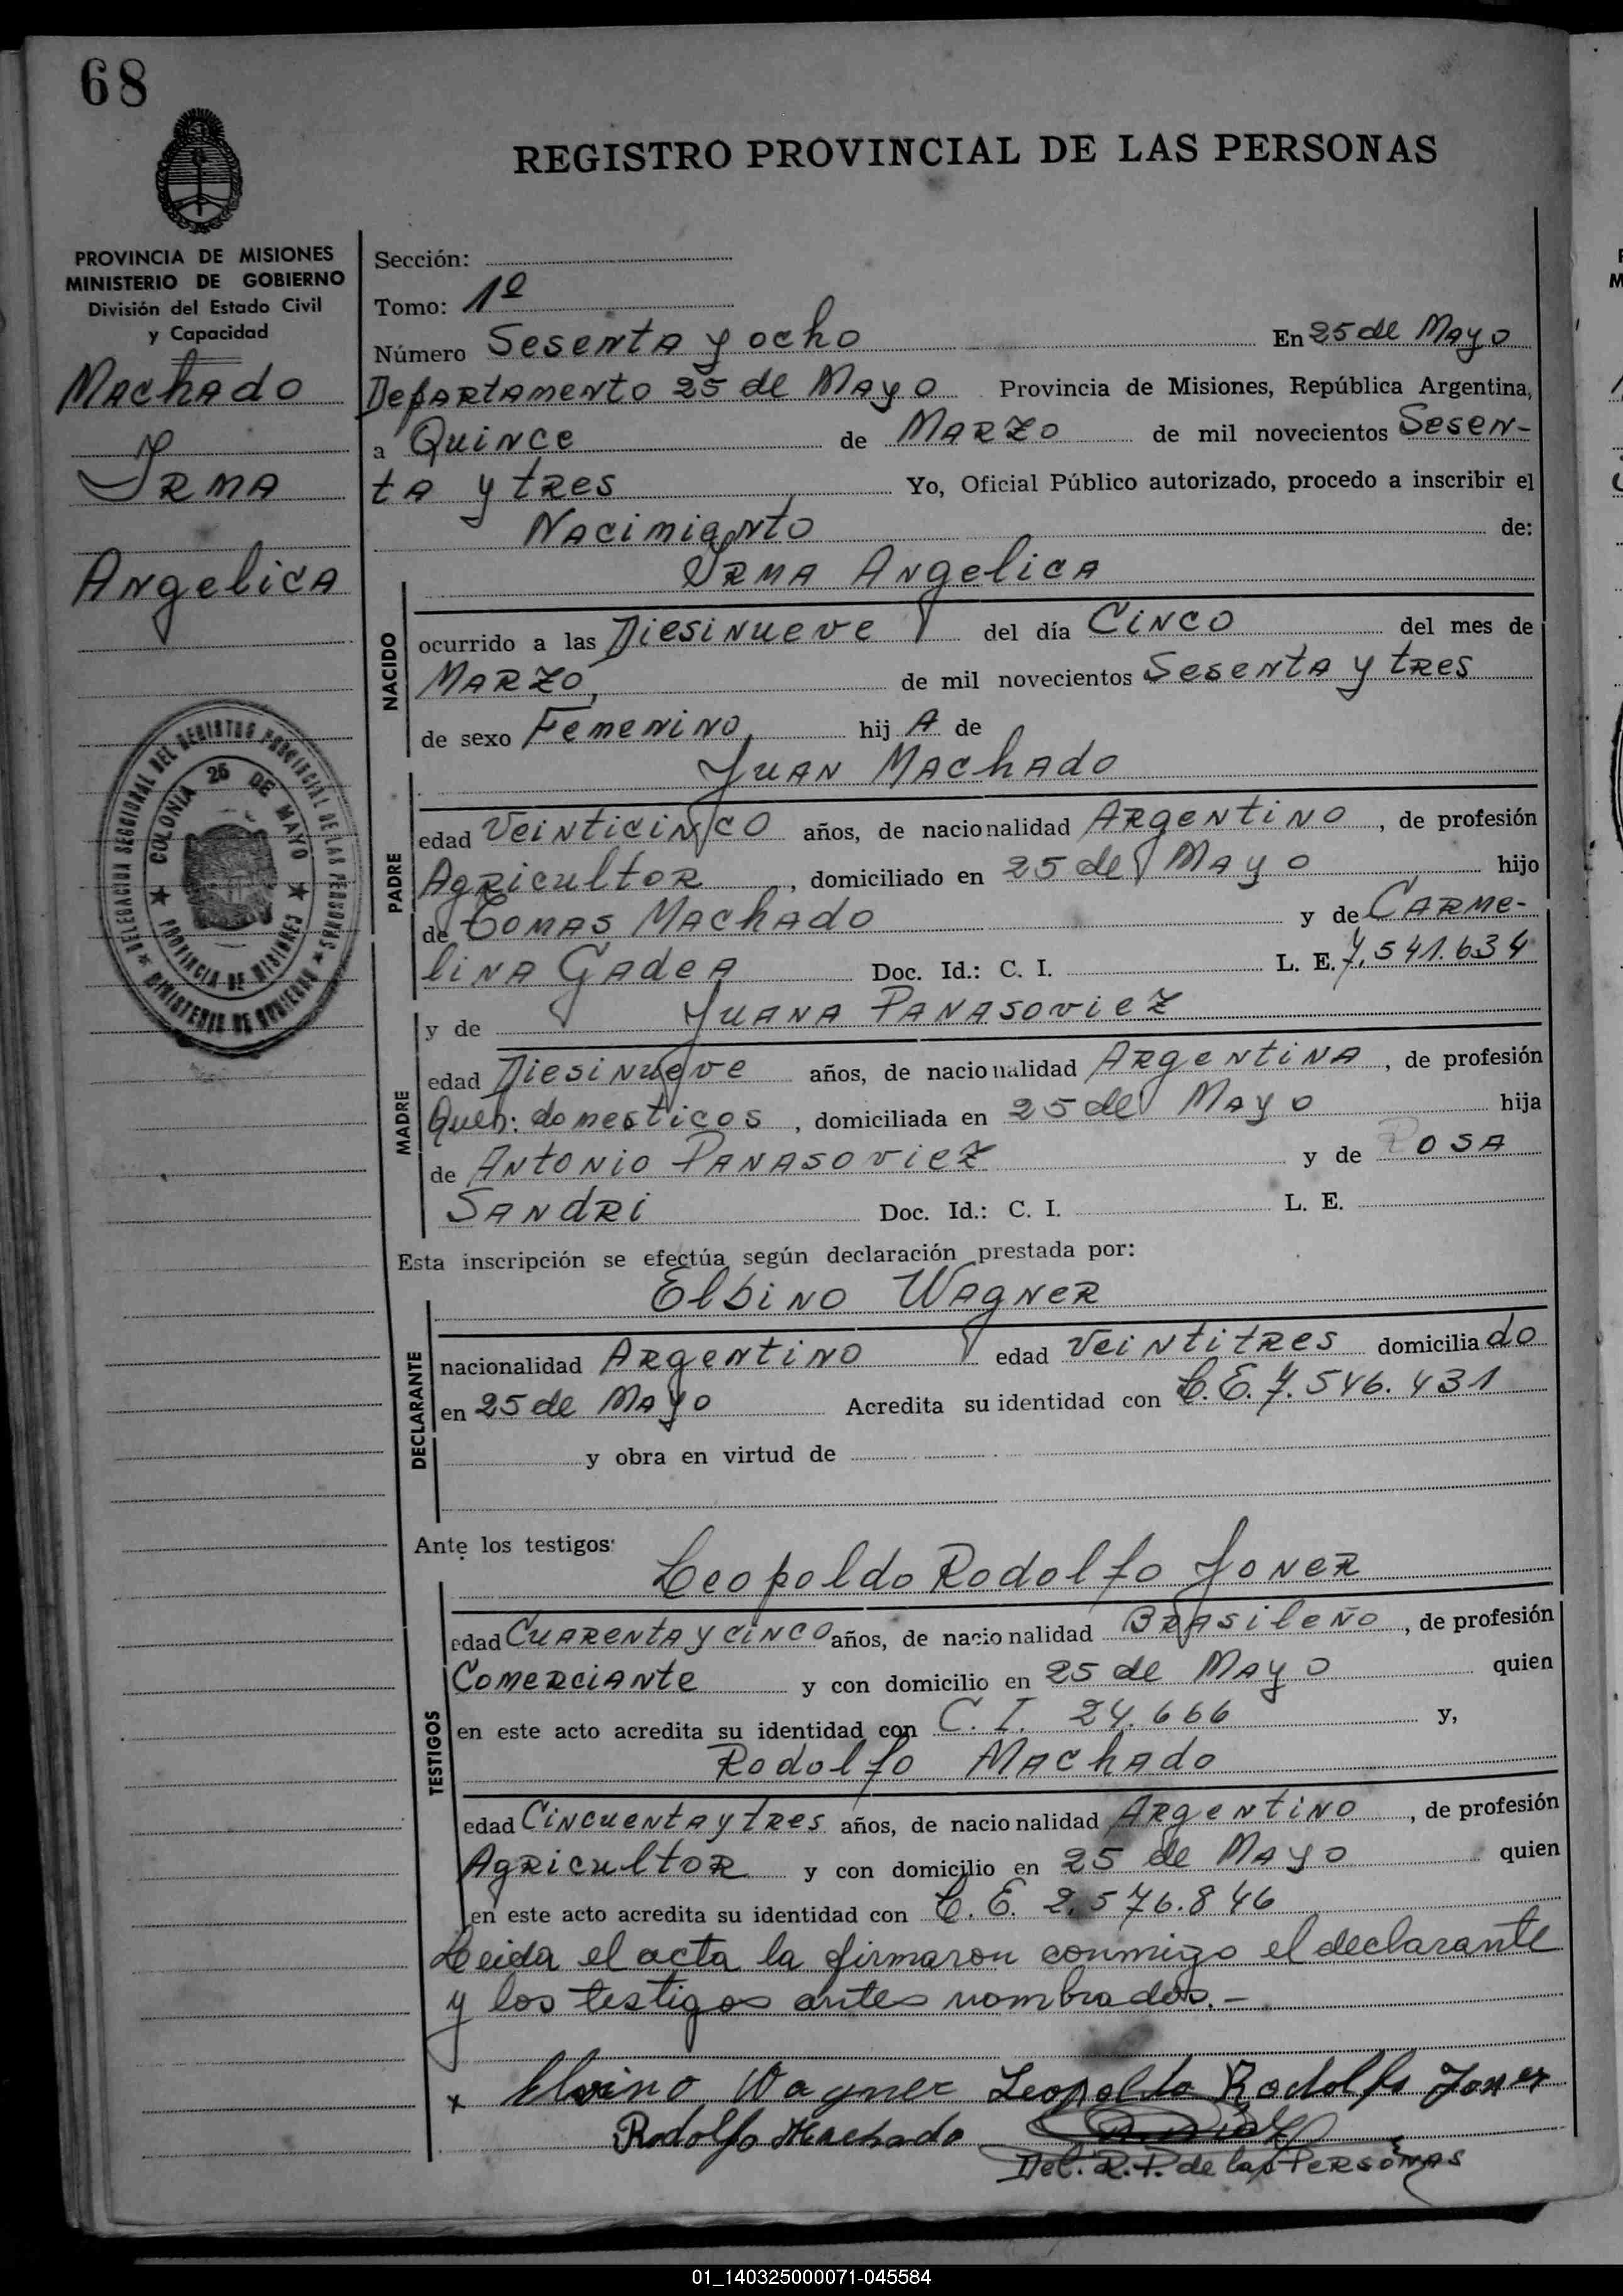 68
REGISTRO PROVINCIAL DE LAS PERSONAS
PROVINCIA DE MISIONES
MINISTERIO DE GOBIERNO
División del Estado Civil
y Capacidad
Machado
Irma
Angelica
DELEGACION SECCIONAL DEL REGISTRO PROVINCIAL DE LAS PERSONAS ★ MINISTERIO DE GOBIERNO ★
COLONIA 25 DE MAYO ★ PROVINCIA DE MISIONES ★
Sección:
Tomo: 1º
Número Sesenta y ocho En 25 de Mayo
Departamento 25 de Mayo Provincia de Misiones, República Argentina,
a Quince de Marzo de mil novecientos Sesen-
ta y tres Yo, Oficial Público autorizado, procedo a inscribir el
Nacimianto de:
Irma Angelica
NACIDO
ocurrido a las Diesinueve del día Cinco del mes de
Marzo, de mil novecientos Sesenta y tres
de sexo Femenino, hij A de
Juan Machado
PADRE
edad Veinticinco años, de nacionalidad Argentino, de profesión
Agricultor, domiciliado en 25 de Mayo hijo
de Tomas Machado y de Carme-
lina Gadea Doc. Id.: C. I. L. E. 7.541.634
y de Juana Panasoviez
MADRE
edad Diesinueve años, de nacionalidad Argentina, de profesión
Queh: domesticos, domiciliada en 25 de Mayo hija
de Antonio Panasoviez y de Rosa
Sandri Doc. Id.: C. I. L. E.
Esta inscripción se efectúa según declaración prestada por:
Elbino Wagner
DECLARANTE
nacionalidad Argentino edad Veintitres domiciliado
en 25 de Mayo Acredita su identidad con L.E. 7.546.431
y obra en virtud de
Ante los testigos:
Leopoldo Rodolfo Joner
TESTIGOS
edad Cuarenta y cinco años, de nacionalidad Brasileño, de profesión
Comerciante y con domicilio en 25 de Mayo quien
en este acto acredita su identidad con C. I. 24.666 y,
Rodolfo Machado
edad Cincuenta y tres años, de nacionalidad Argentino, de profesión
Agricultor y con domicilio en 25 de Mayo quien
en este acto acredita su identidad con L. E. 2.576.846
Leida el acta la firmaron conmigo el declarante
y los testigos antes nombrados.-
x Elvino Wagner Leopoldo Rodolfo Joner
Rodolfo Machado
Del. R.P. de las Personas
01_140325000071-045584